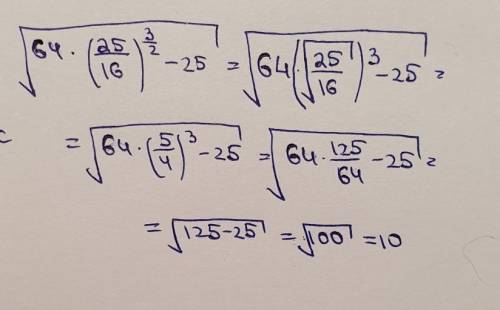 √(64 · (25/16)^(3/2) - 25) = √(64(√(25/16))^3 - 25) =
= √(64 · (5/4)^3 - 25) = √(64 · 125/64 - 25) =
= √(125-25) = √100 = 10